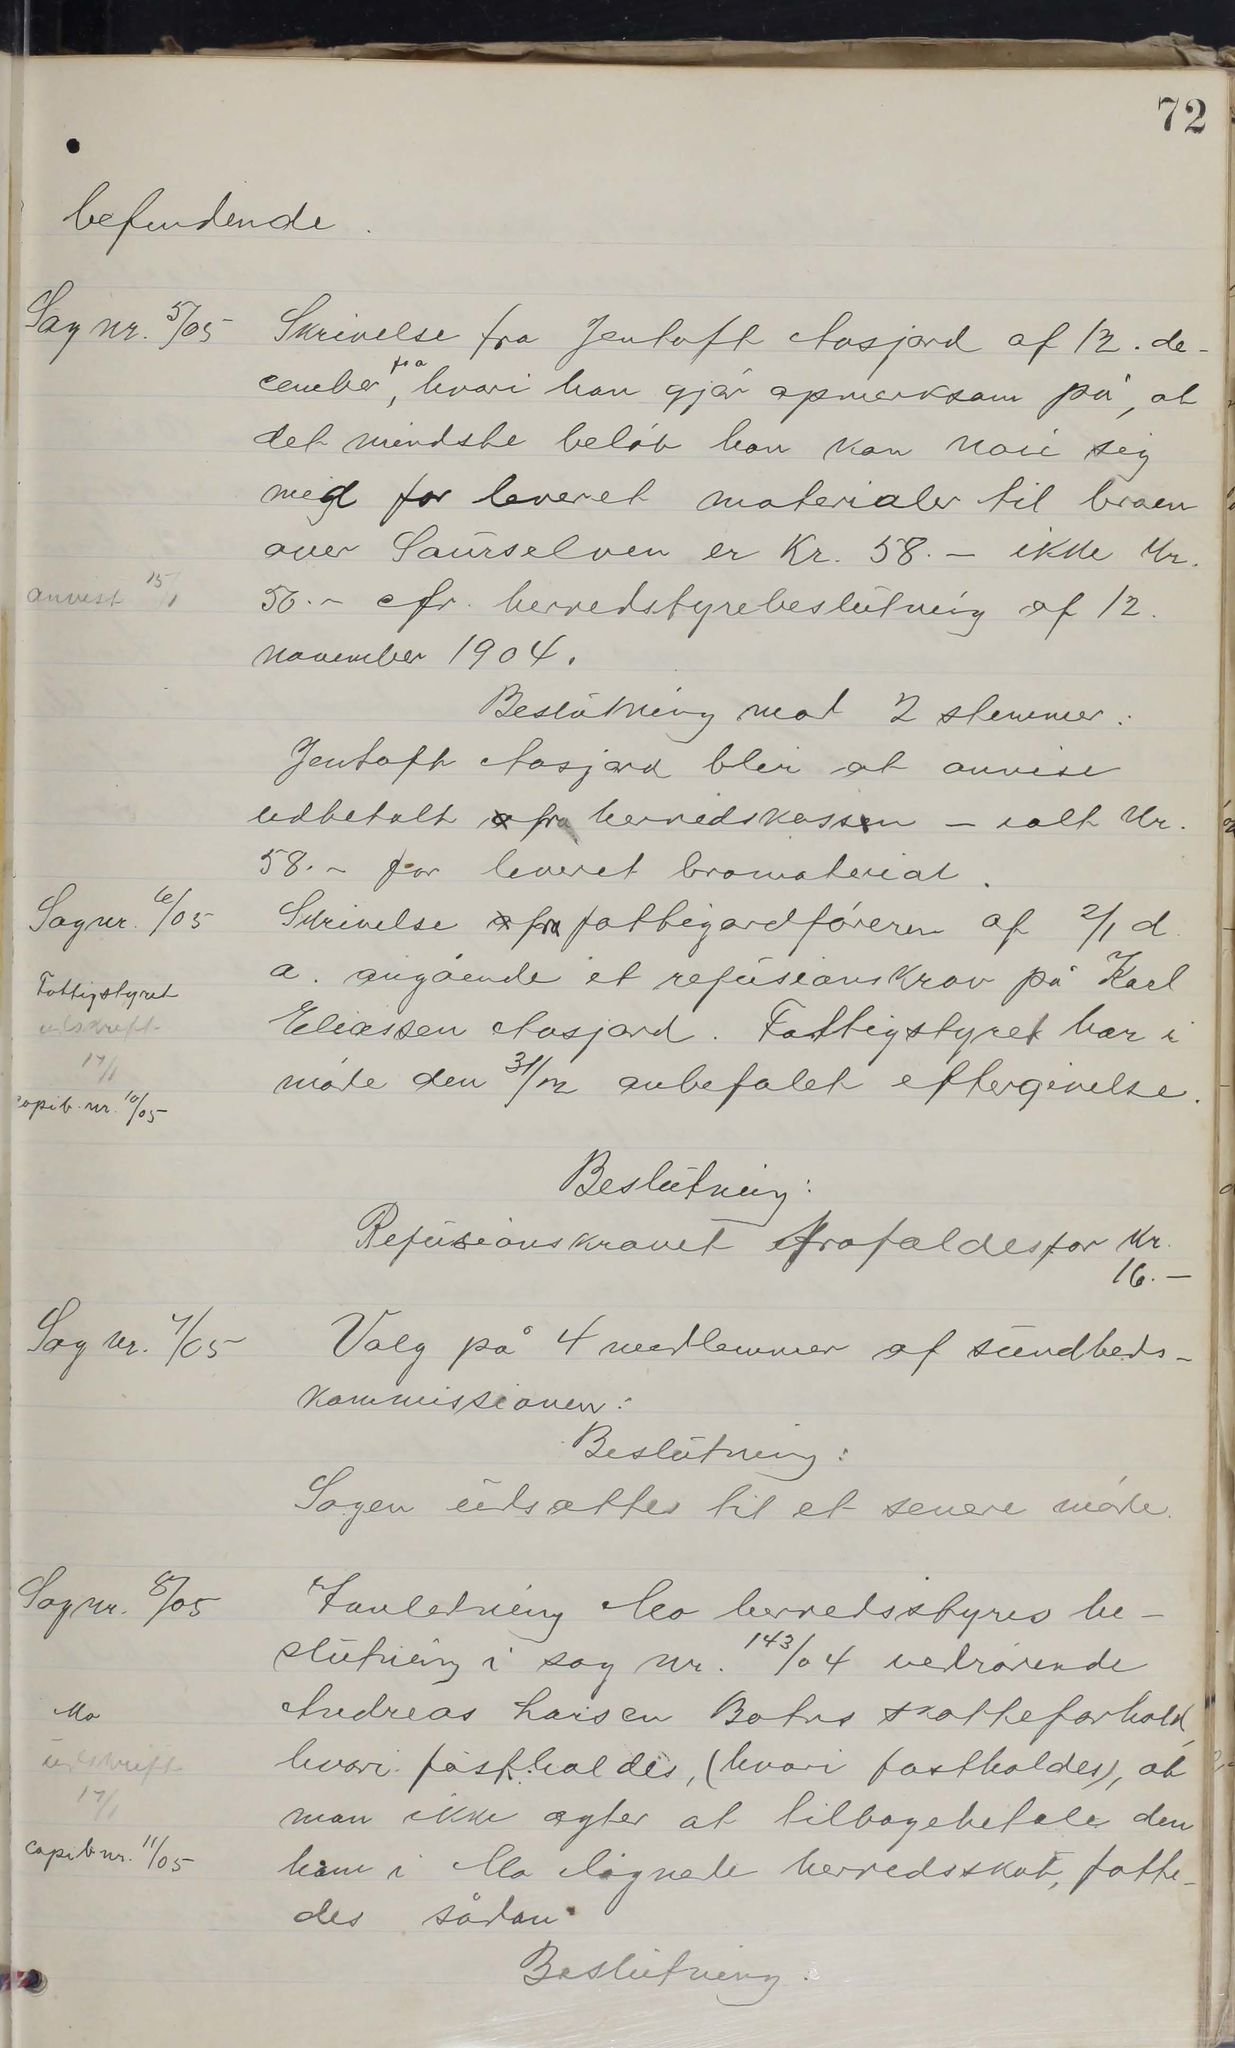 72
befindende.
Sag nr. 5/05 Skrivelse fra Jentoft Aasjord af 12. de-
cember f a, hvori han gjör opmerksom på, at
det mindste beløb han kan nöie sig
med for leveret materialer til broen
over Saurselven er Kr. 58.- ikke Kr.
anvist 15/1 50.- cfr. herredstyrebeslutning af 12.
november 1904.
Beslutning mod 2 stemmer:
Jentoft Aasjord blir at anvise
udbetalt fra herredskassen - ialt Kr.
58.- for leveret bromaterial.
Sag nr. 6/05 Skrivelse fra fattiggardföreren af 2/1 d.
a. angående et refusionskrav på Karl
Fattigstyret
udskrift
Eliassen Aasjord. Fattigstyret har i
17/1
möte den 31/12 anbefalet eftergivelse.
copib. nr. 10/05
Beslutning:
Refusionskravet frafaldes for Kr.
16.-
Sag nr. 7/05 Valg på 4 medlemmer af sundheds-
kommissionen:
Beslutning:
Sagen udsættes til et senere möte.
Sag nr. 8/05 I anledning Mo herredsstyres be-
slutning i sag nr. 143/04 vedrörende
Mo Andreas Larsen Botns skatteforhold,
udskrift hvori fastholdes, (hvori fastholdes), at
17/1
man ikke agter at tilbagebetale den
copib nr. 11/05 ham i Mo lignede herredsskat, fatte-
des sådan
Beslutning: